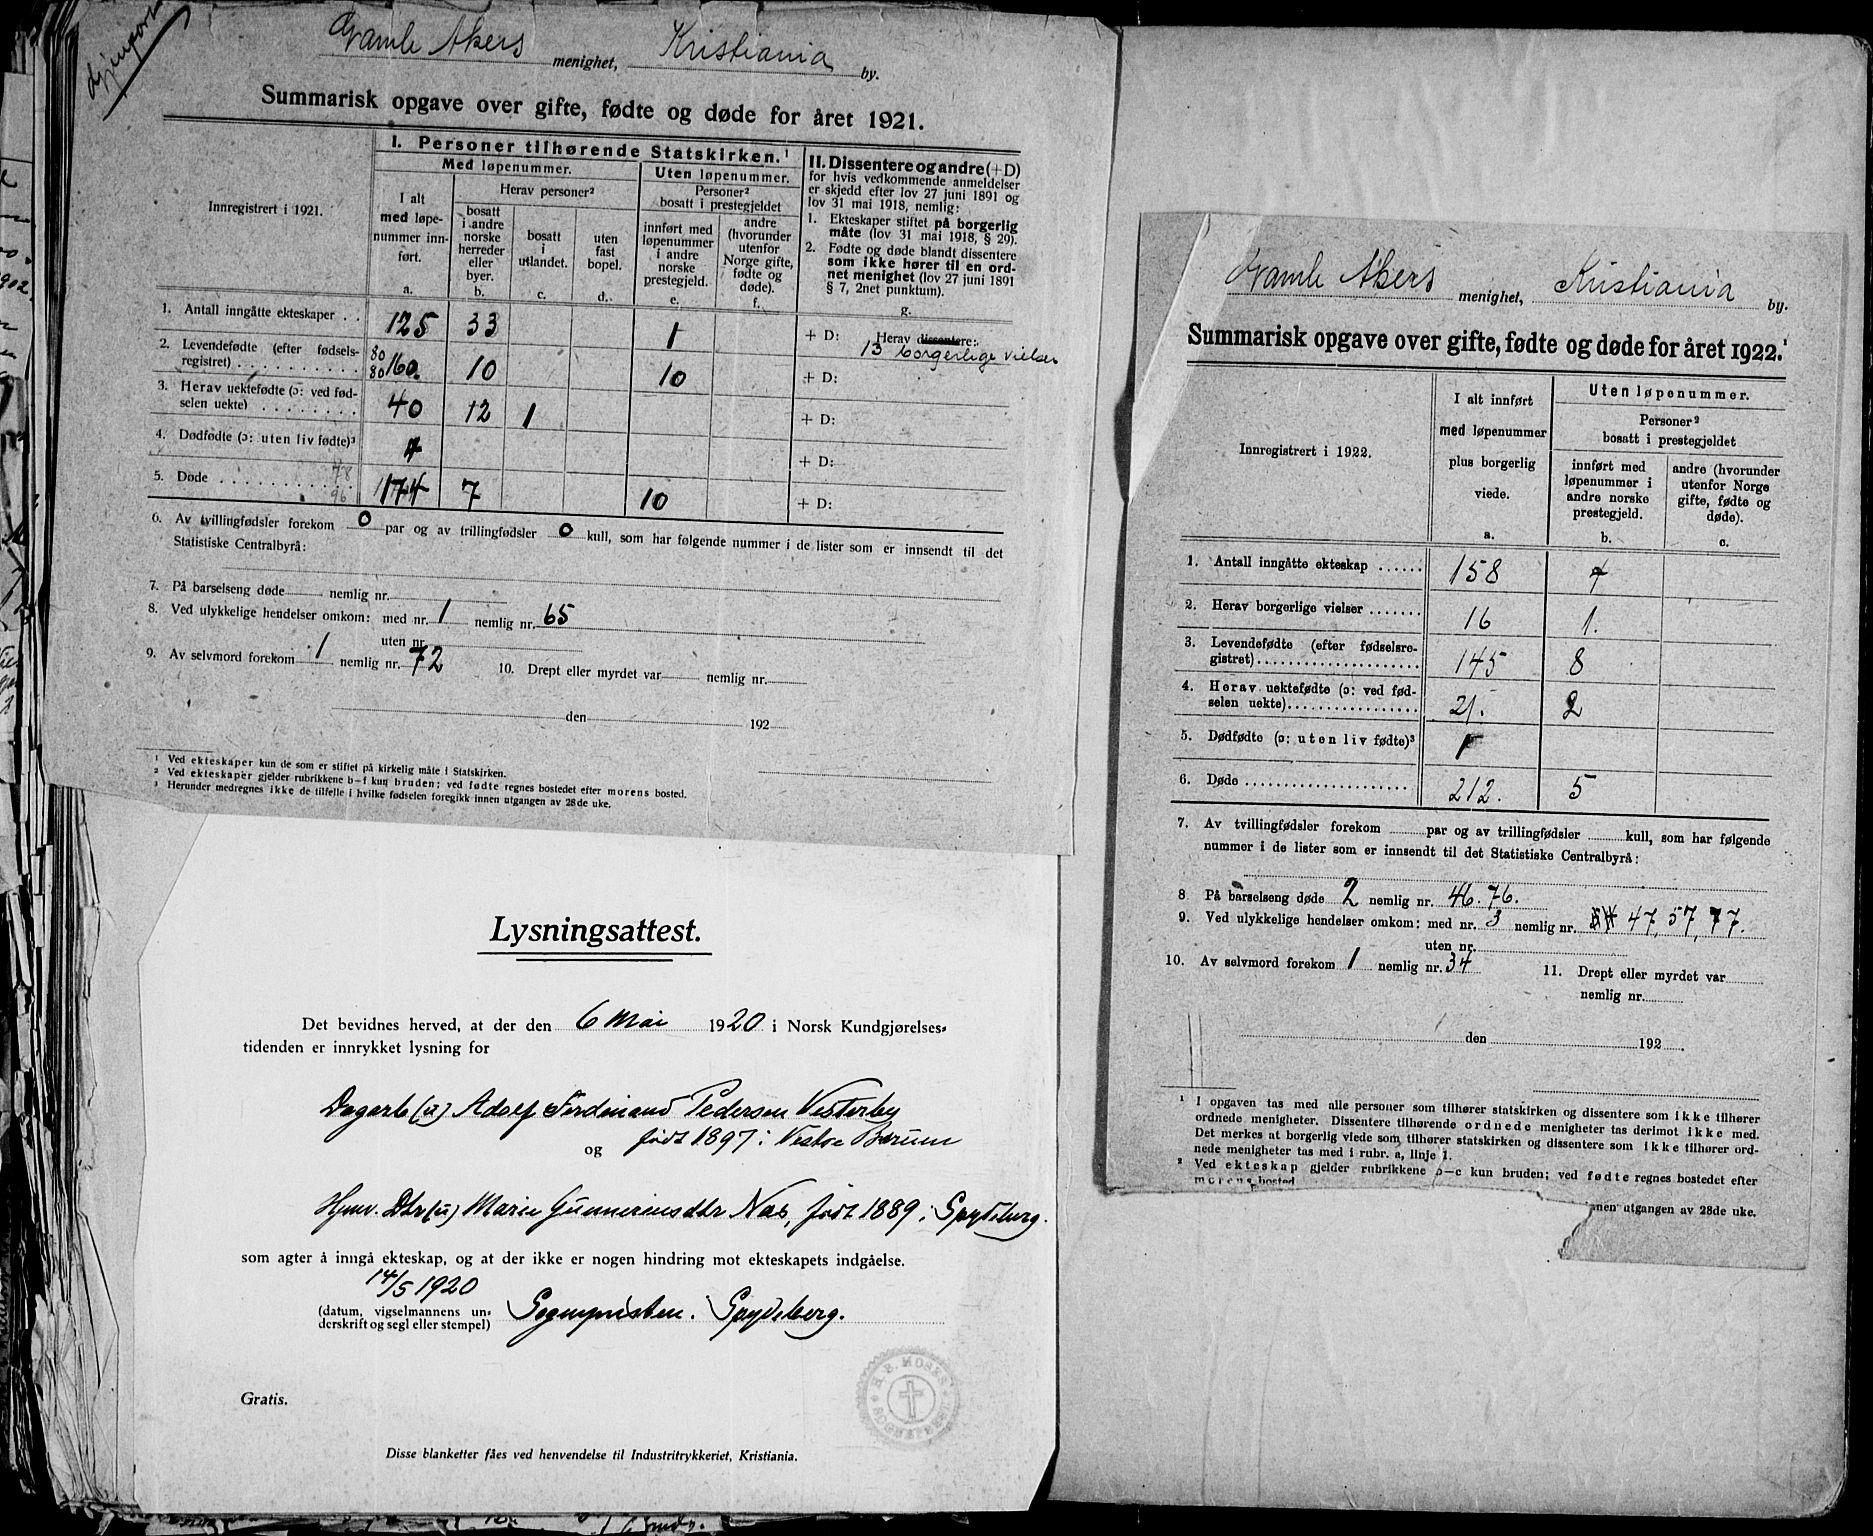 Gjenpart
Gamle Akers menighet, Kristiania by.
Summarisk opgave over gifte, fødte og døde for året 1921.
Innregistrert i 1921.
I. Personer tilhørende Statskirken.¹
Med løpenummer.
Uten løpenummer.
I alt med løpe-nummer inn-ført.
a.
Herav personer²
bosatt i andre norske herreder eller byer.
b.
bosatt i utlandet.
c.
uten fast bopel.
d.
Personer² bosatt i prestegjeldet
innført med løpenummer i andre norske prestegjeld.
e.
andre (hvorunder utenfor Norge gifte, fødte og døde).
f.
II. Dissentere og andre (+ D)
for hvis vedkommende anmeldelser
er skjedd efter lov 27 juni 1891 og
lov 31 mai 1918, nemlig:
1. Ekteskaper stiftet på borgerlig
måte (lov 31 mai 1918, § 29).
2. Fødte og døde blandt dissentere
som ikke hører til en ord-
net menighet (lov 27 juni 1891
§ 7, 2net punktum).
g.
1. Antall inngåtte ekteskaper . . 125 33 1 + D: Herav dissentere:
13 borgerlige vielser
2. Levendefødte (efter fødsels-
registret) 80 80 160. 10 10 + D:
3. Herav uektefødte (ɔ: ved fød-
selen uekte) 40 12 1 + D:
4. Dødfødte (ɔ: uten liv fødte)³ 4 + D:
5. Døde 78 96 174 7 10 + D:
6. Av tvillingfødsler forekom 0 par og av trillingfødsler 0 kull, som har følgende nummer i de lister som er innsendt til det
Statistiske Centralbyrå:
7. På barselseng døde nemlig nr.
8. Ved ulykkelige hendelser omkom: med nr. 1 nemlig nr. 65
uten nr.
9. Av selvmord forekom 1 nemlig nr. 72 10. Drept eller myrdet var nemlig nr.
den 192
¹ Ved ekteskaper kun de som er stiftet på kirkelig måte i Statskirken.
² Ved ekteskaper gjelder rubrikkene b–f kun bruden; ved fødte regnes bostedet efter morens bosted.
³ Herunder medregnes ikke de tilfelle i hvilke fødselen foregikk innen utgangen av 28de uke.
Lysningsattest.
Det bevidnes herved, at der den 6 Mai 1920 i Norsk Kundgjørelses-
tidenden er innrykket lysning for
Dagarb (u) Adolf Ferdinand Pedersen Vesterby
født 1897 i Vestre Bærum
og
Hjmv. Dtr (u) Marie Gunneriusdtr Næs, født 1889 i Spydeberg.
som agter å inngå ekteskap, og at der ikke er nogen hindring mot ekteskapets indgåelse.
14/5 1920
(datum, vigselmannens un-
derskrift og segl eller stempel) Sognepresten i Spydeberg.
Gratis.
Disse blanketter fåes ved henvendelse til Industritrykkeriet, Kristiania.
Gamle Akers menighet, Kristiania by.
Summarisk opgave over gifte, fødte og døde for året 1922.¹
Innregistrert i 1922.
I alt innført
med løpenummer
plus borgerlig
viede.
a.
Uten løpenummer.
Personer²
bosatt i prestegjeldet
innført med løpenummer i andre norske prestegjeld.
b.
andre (hvorunder utenfor Norge gifte, fødte og døde).
c.
1. Antall inngåtte ekteskap 158 4
2. Herav borgerlige vielser 16 1.
3. Levendefødte (efter fødselsre-
gistret) 145 8
4. Herav uektefødte (ɔ: ved fød-
selen uekte) 21. 2
5. Dødfødte (ɔ: uten liv fødte)³ 1
6. Døde 212. 5
7. Av tvillingfødsler forekom par og av trillingfødsler kull, som har følgende
nummer i de lister som er innsendt til det Statistiske Centralbyrå:
8 På barselseng døde 2 nemlig nr. 46. 76.
9. Ved ulykkelige hendelser omkom: med nr. 3 nemlig nr. 47, 57, 77.
uten nr.
10. Av selvmord forekom 1 nemlig nr. 34 11. Drept eller myrdet var
nemlig nr.
den 192
¹ I opgaven tas med alle personer som tilhører statskirken og dissentere som ikke tilhører
ordnede menigheter. Dissentere tilhørende ordnede menigheter tas derimot ikke med.
Det merkes at borgerlig viede som tilhører statskirken og dissentere som ikke tilhører ord-
nede menigheter tas med i rubr. a, linje 1.
² Ved ekteskap gjelder rubrikkene b–c kun bruden; ved fødte regnes bostedet efter
morens bosted.
innen utgangen av 28de uke.